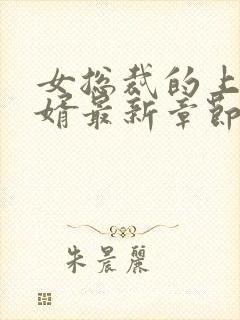 女总裁的上
婿最新章节
朱晨丽